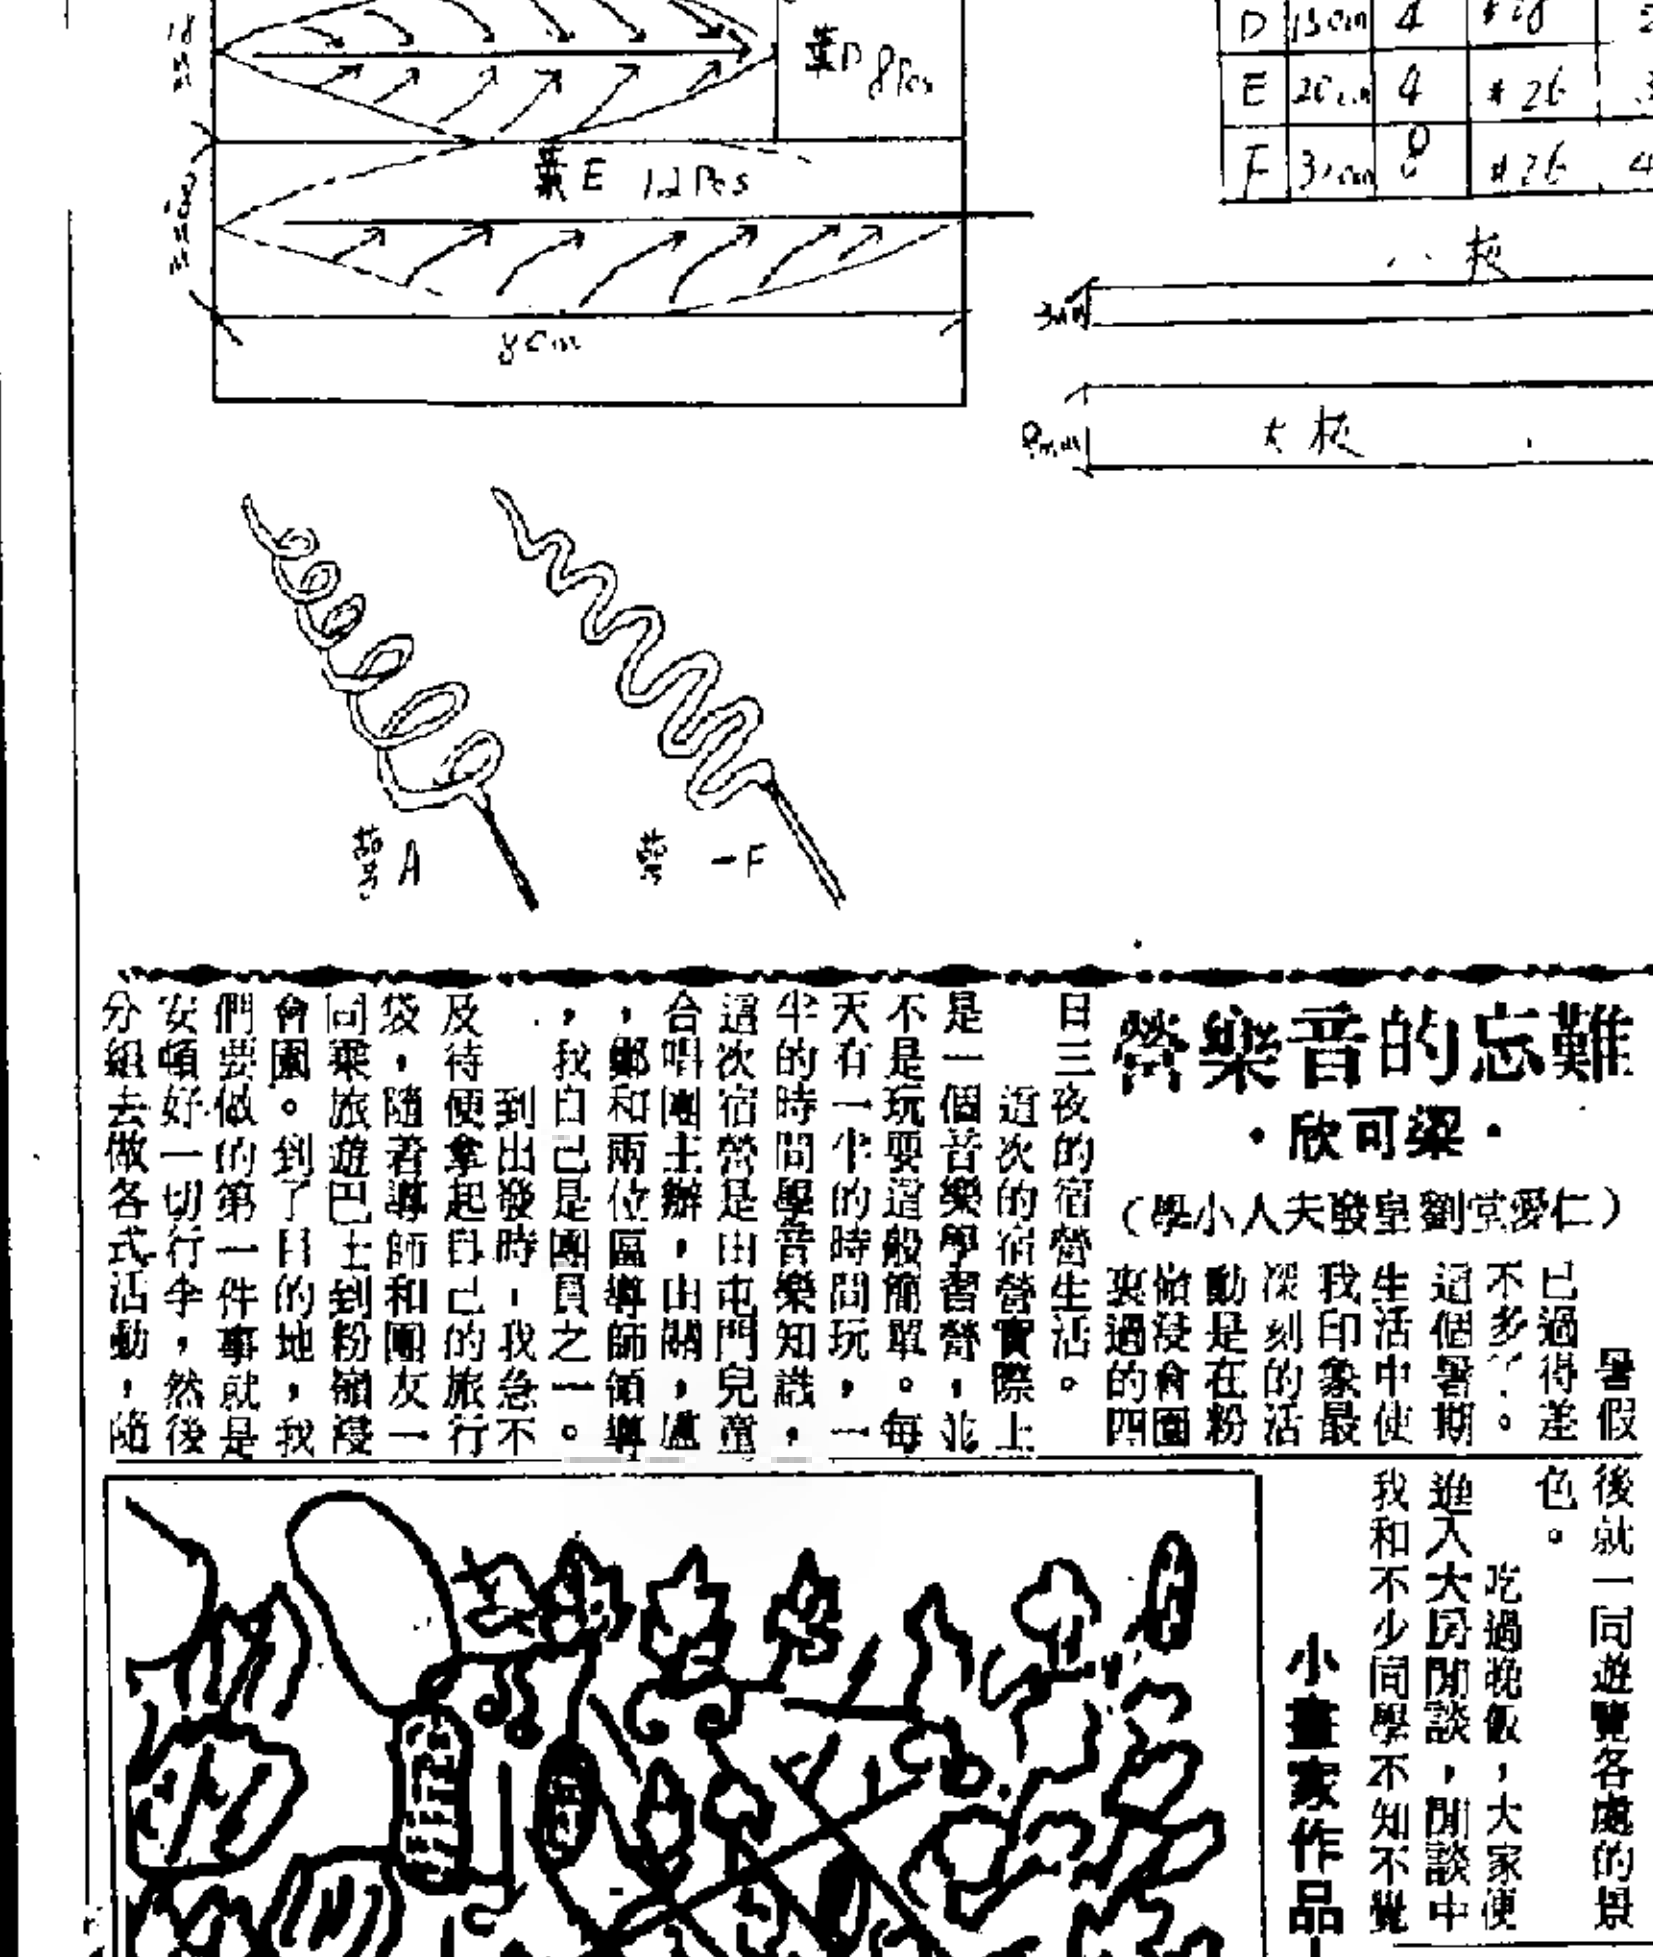 葉D 8Pcs
葉E 12Pcs
8cm
D 15cm 4 #28
E 20cm 4 #26
F 4 8 #26
大枝
A
F
難忘的音樂營
·梁可欣·
(仁愛堂劉皇發夫人小學)
暑假
已過得差
不多了。
這個暑期
生活中使
我印象最
深刻的活
動是在粉
嶺浸會園
裏過的四
日三夜的宿營生活。
這次的宿營實際上
是一個音樂學習營,並
不是玩耍這般簡單。每
天有一半的時間玩,一
半的時間學音樂知識。
這次宿營是由屯門兒童
合唱團主辦,由關,盧
,鄭和兩位區導師領導
,我自己是團員之一。
到出發時,我急不
及待便拿起自己的旅行
袋,隨著導師和團友一
同乘旅遊巴士到粉嶺浸
會園。到了目的地,我
們要做的第一件事就是
安頓好一切行李,然後
分組去做各式活動,隨
後就一同遊覽各處的景
色。
吃過晚飯,大家便
進入大房閒談,閒談中
我和不少同學不知不覺
小畫家作品